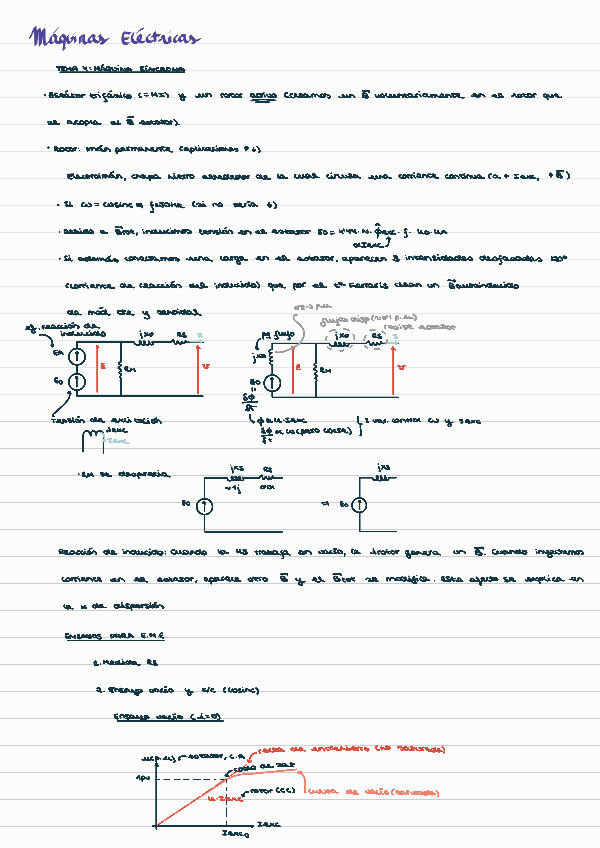 Máquinas Eléctricas
TEMA 4: MÁQUINA SÍNCRONA
· Estátor trifásico (=MI) y un rotor activo (creamos un B voluntariamente en el rotor que
se acopla al B estator)
· Rotor: imán permanente (aplicaciones ↑↓)
Electroimán, chapa hierro alrededor de la cual circula una corriente continua (a + Iexc, +B)
· Si ω = cte
· Debido a Brot, inducimos tensión en el estator E0 = 4'44·N·ϕexc·f·
αIexc
· Si además conectamos una carga en el estator, aparecen 3 intensidades desfasadas 120º
(corriente de reacción del inducido) que por el tª Ferraris crean un B inducido
de mód. cte y senoidal
ef. reacción de
inducido
jXσ
Rs
I
ER
E
RM
V
E0
Tensión de excitación
Iexc
pq flujo
flujo disp
resist estator
jXσ
Rs
I
E0
E
RM
V
dϕ
dt
ϕ
2 var. control ω y Iexc
· RM se desprecia
jXs
Rs
E0
⇒
E0
jXs
Reacción de inducido: Cuando la MS trabaja en vacío, la Irotor genera un B. Cuando inyectamos
corriente en el estator, aparece otro B y el Btot se modifica. Este efecto se explica en
la X de dispersión
ENSAYOS PARA E.M.E
1. Medida Rs
2. Ensayo vacío y c/c
Ensayo vacío (I=0)
estator, C.A
recta de entrehierro (no saturada)
1pu
codo de sat
rotor (CC)
curva de vacío (saturada)
Iexc
Iexc0